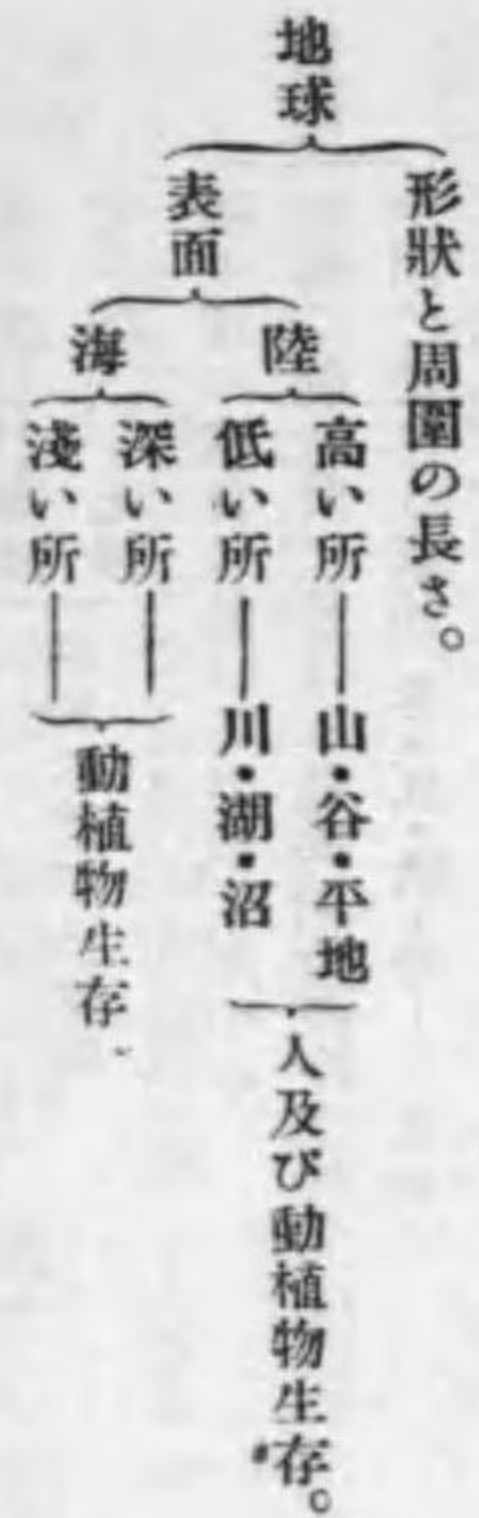 地球
形狀と周圍の長さ。
表面
陸
高い所
山・谷・平地
低い所
川・湖・沼
人及び動植物生存。
海
深い所
淺い所
動植物生存